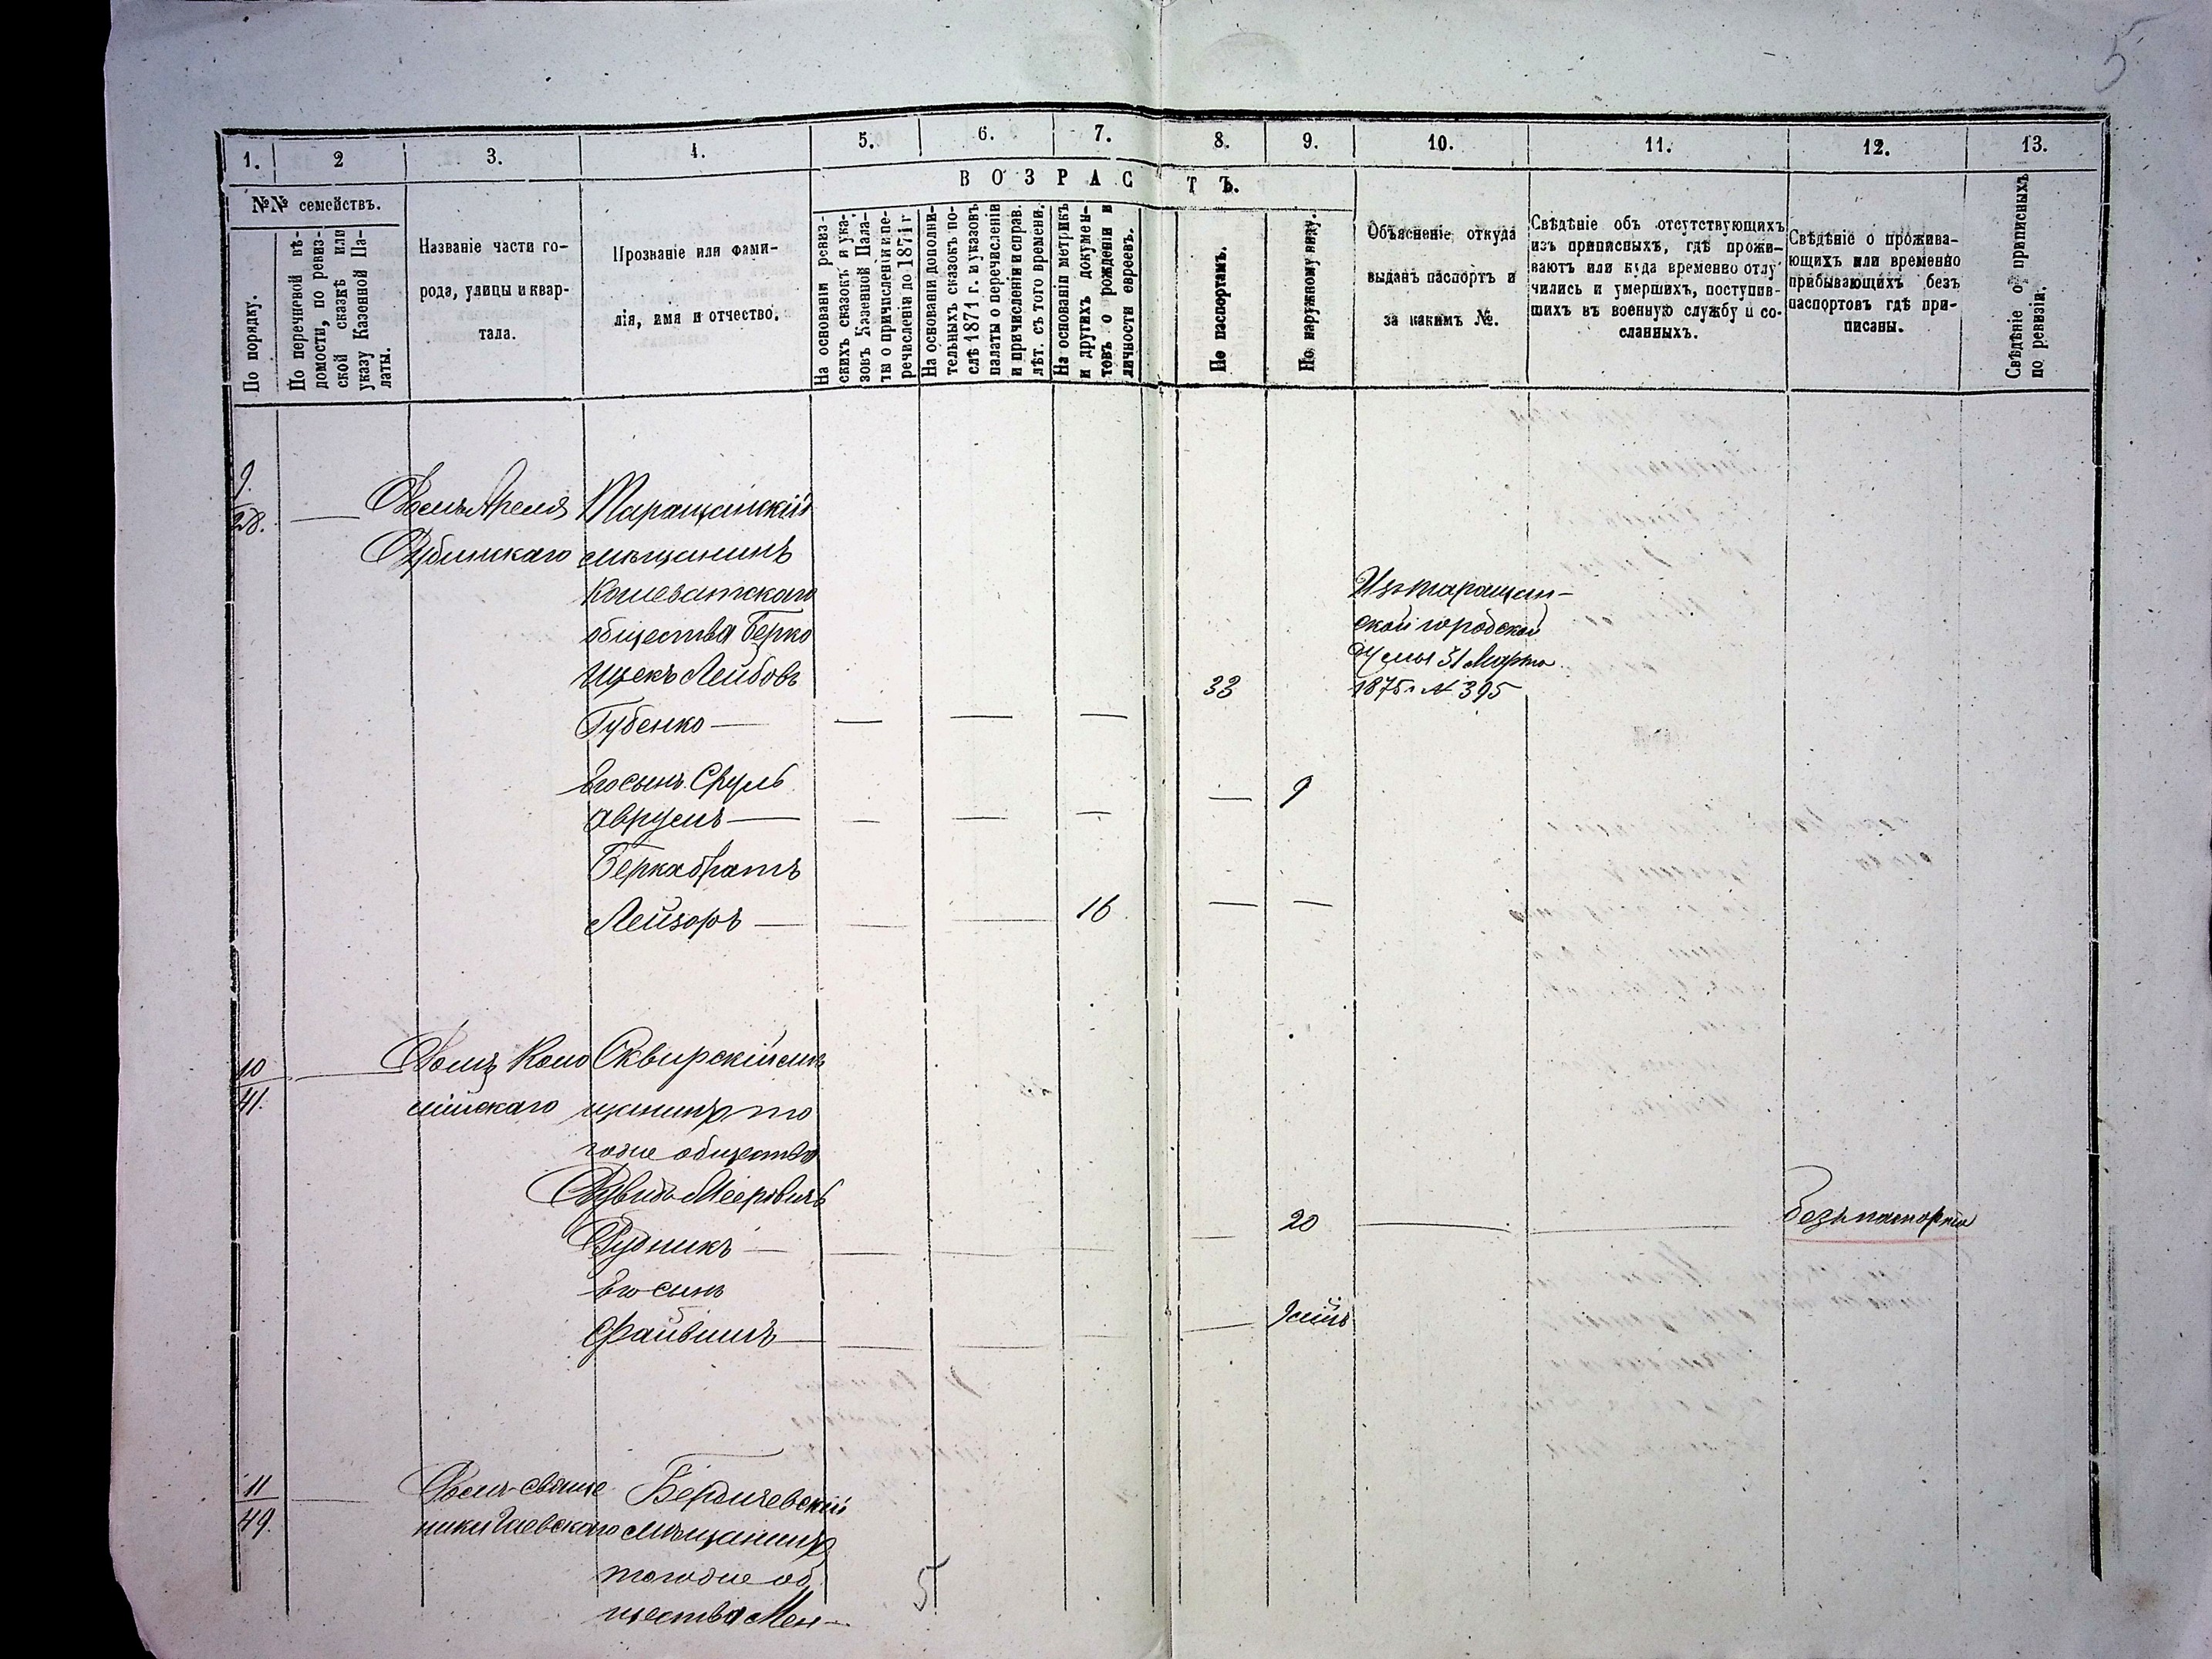 5
1. 2 3. 4. 5. 6. 7. 8. 9. 10. 11. 12. 13.
В О З Р А С Т Ъ.
№№ семействъ.
По порядку.
По перечневой вѣ-
домости, по ревиз-
ской сказкѣ или
указу Казенной Па-
латы.
Названіе части го-
рода, улицы и квар-
тала.
Прозваніе или фами-
лія, имя и отчество.
На основаніи ревиз-
скихъ сказокъ и ука-
зовъ Казенной Пала-
ты о причисленіи и пе-
речисленіи до 1871 г
На основаніи дополни-
тельныхъ сказокъ по-
слѣ 1871 г. и указовъ
палаты о перечисленіи
и причисленіи и справ.
лѣт. съ того времени.
На основаніи метрикъ
и другихъ докумен-
товъ о рожденіи и
личности евреевъ.
По паспортамъ.
По наружному виду.
Объясненіе откуда
выданъ паспортъ и
за какимъ №.
Свѣдѣніе объ отсутствующихъ
изъ приписныхъ, гдѣ прожи-
ваютъ или куда временно отлу-
чились и умершихъ, поступив-
шихъ въ военную службу и со-
сланныхъ.
Свѣдѣніе о прожива-
ющихъ или временно
прибывающихъ безъ
паспортовъ гдѣ при-
писаны.
Свѣдѣніе о приписныхъ
по ревизіи.
9.
28.
Домъ Арела
Дубинскаго
Таращанскій
мѣщанинъ
Кошеватскаго
общества Берко
Ицекъ Лейбовъ
Губенко —
33
Изъ таращан-
ской городской
Думы 31 Марта
1875 г № 395
Его сынъ Сруль
Аврумъ —
9
Берка братъ
Лейзоръ —
16
10
41.
Домъ Коло
мійскаго
Сквирскій мѣ
щанинъ то
гоже общества
Дувидъ Мееровичъ
Рудникъ —
20
безъ паспорта
Его сынъ
Файвишъ —
11
49.
Домъ священ
ника Гаевскаго
Бердичевскій
мѣщанинъ
тогоже об
щества Мен-
5